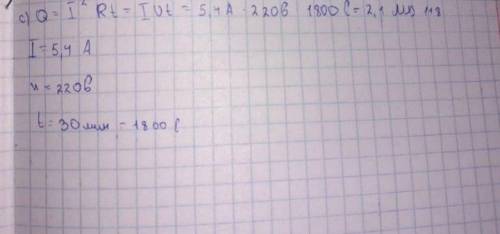 c) Q = I² Rt = I Ut = 5,4 А · 220В 1800 С = 2,1
I = 5,4 А
u = 220В
t = 30 мин = 1800 С